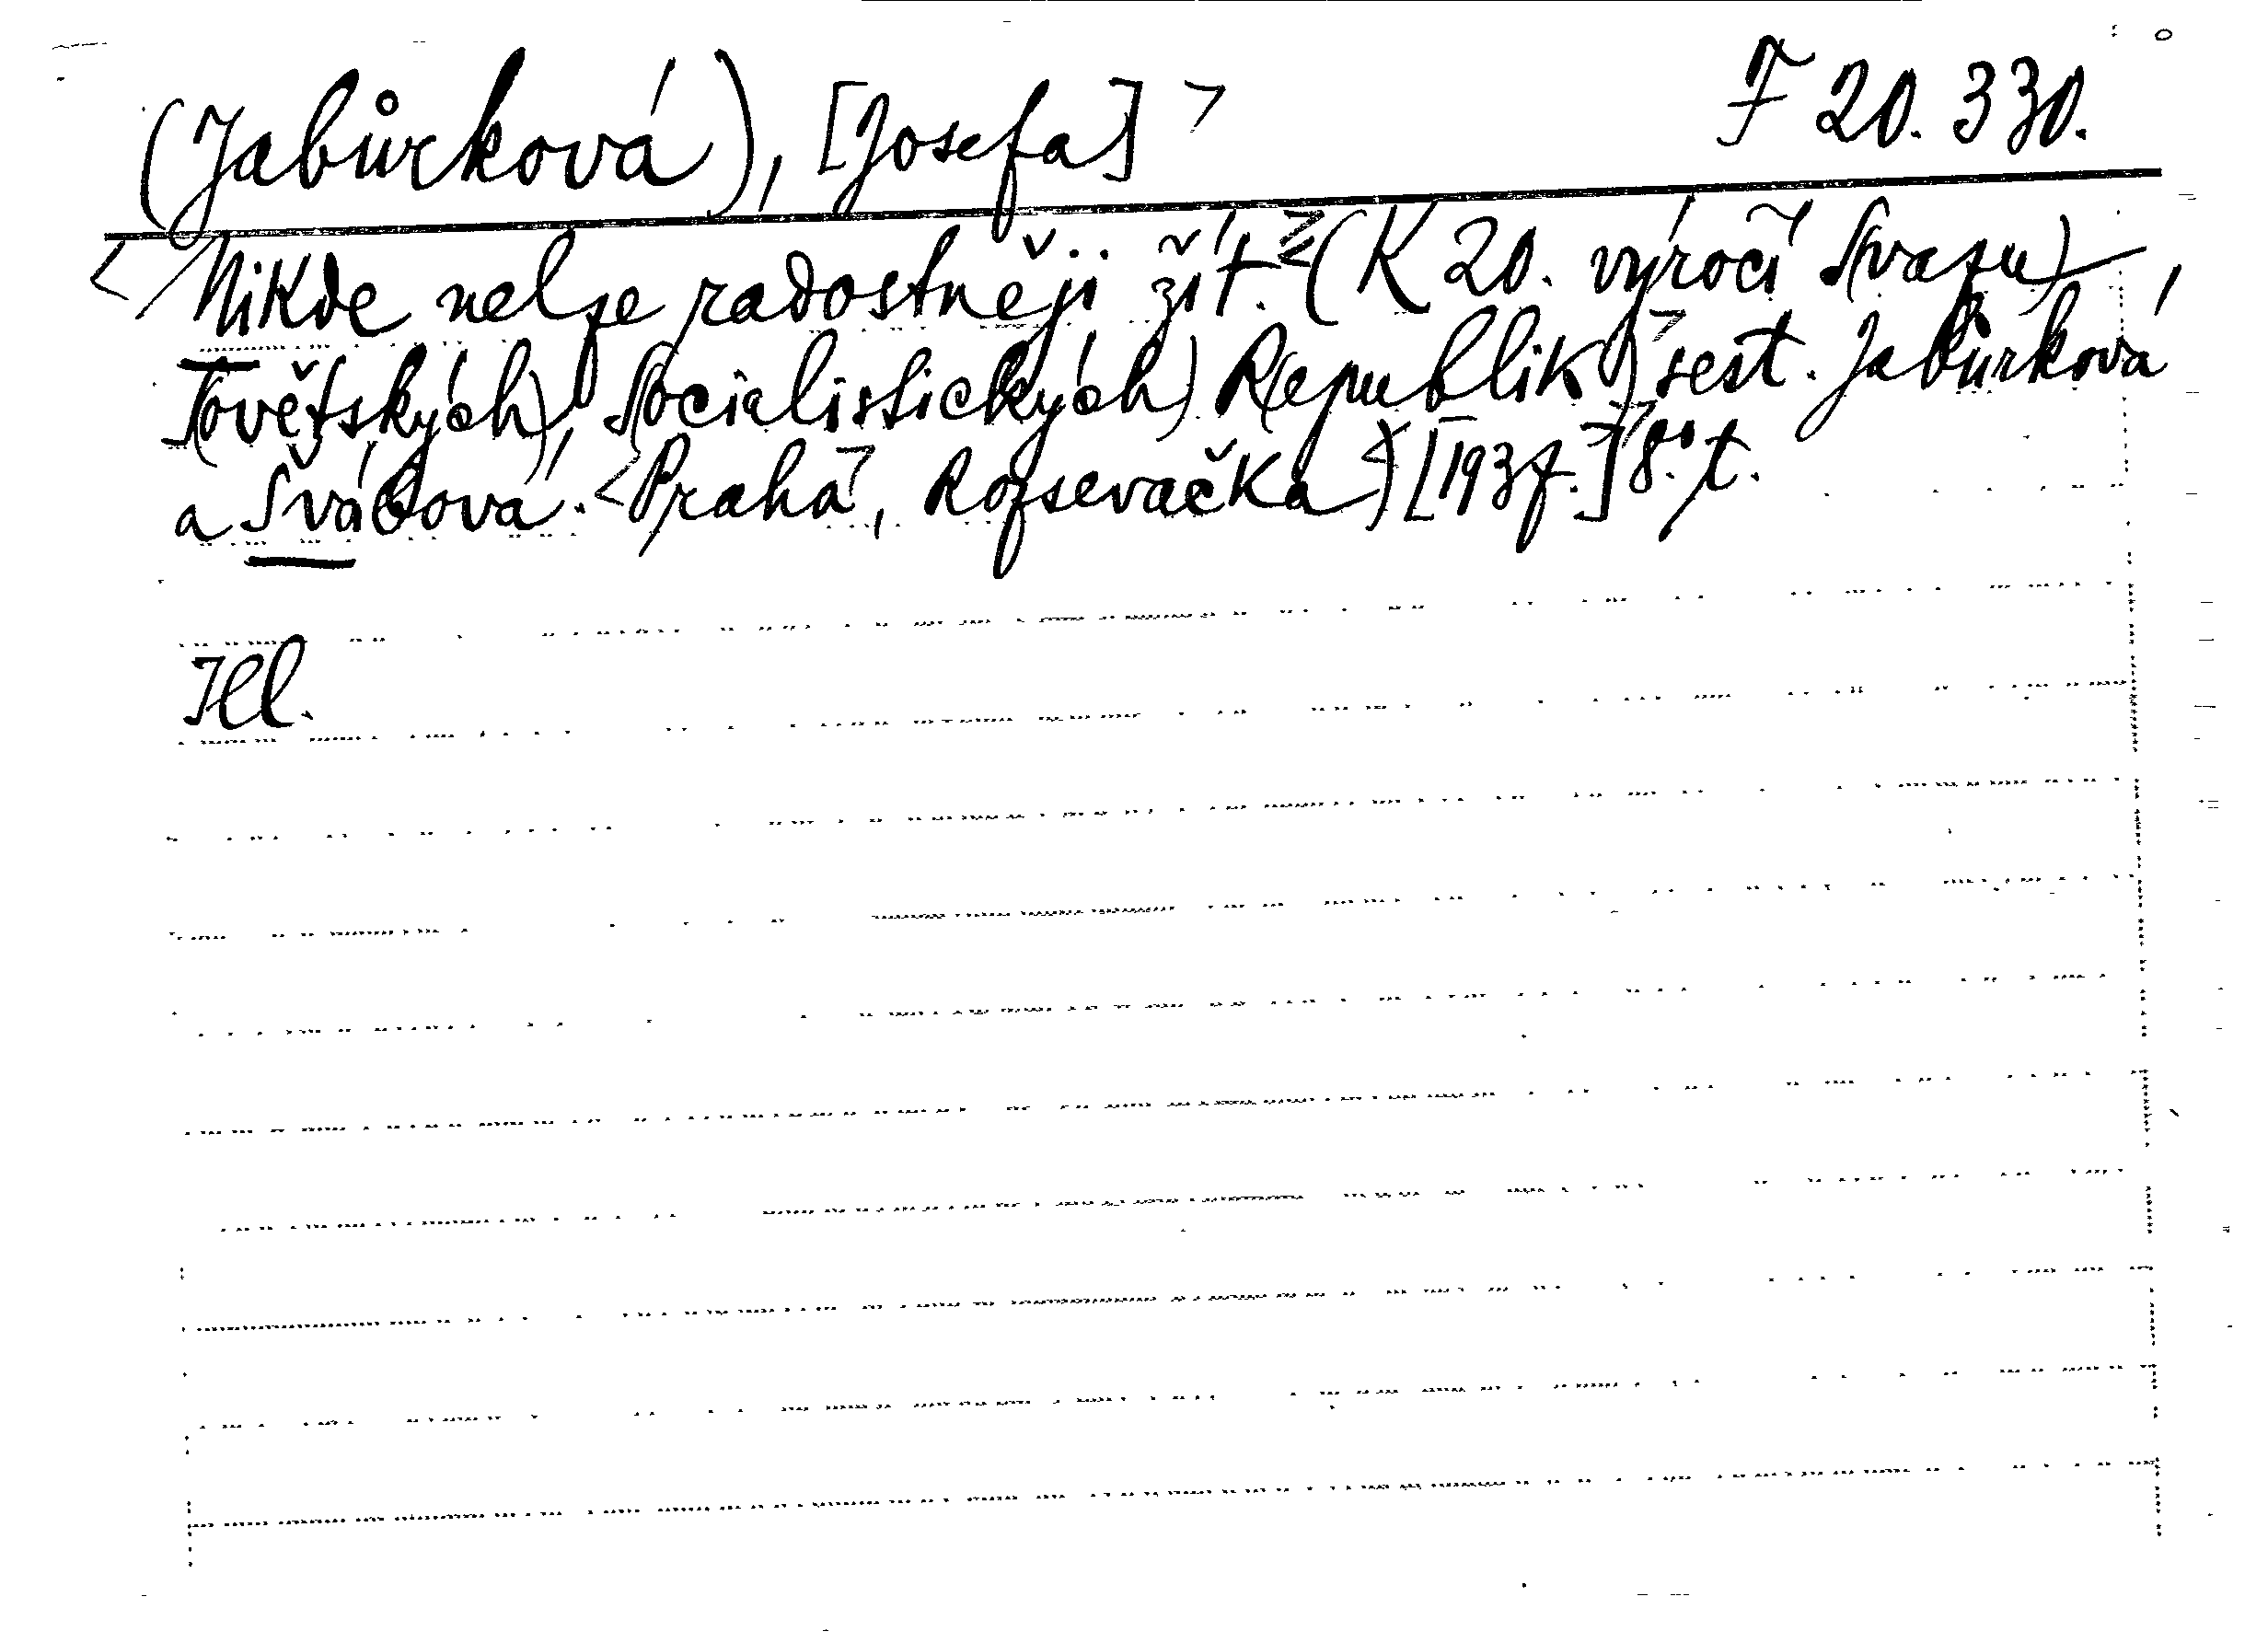 (Jabůrková), [Josefa]> F 20.330.
<Nikde nelze radostněji žít.> <(K 20. výročí S(vazu)
S(ovětských) S(ocialistických) R(epublik)> sest. Jabůrková
a Švábová. <Praha>, Rozsevačka <[1937.]> 8° t.
Ill.